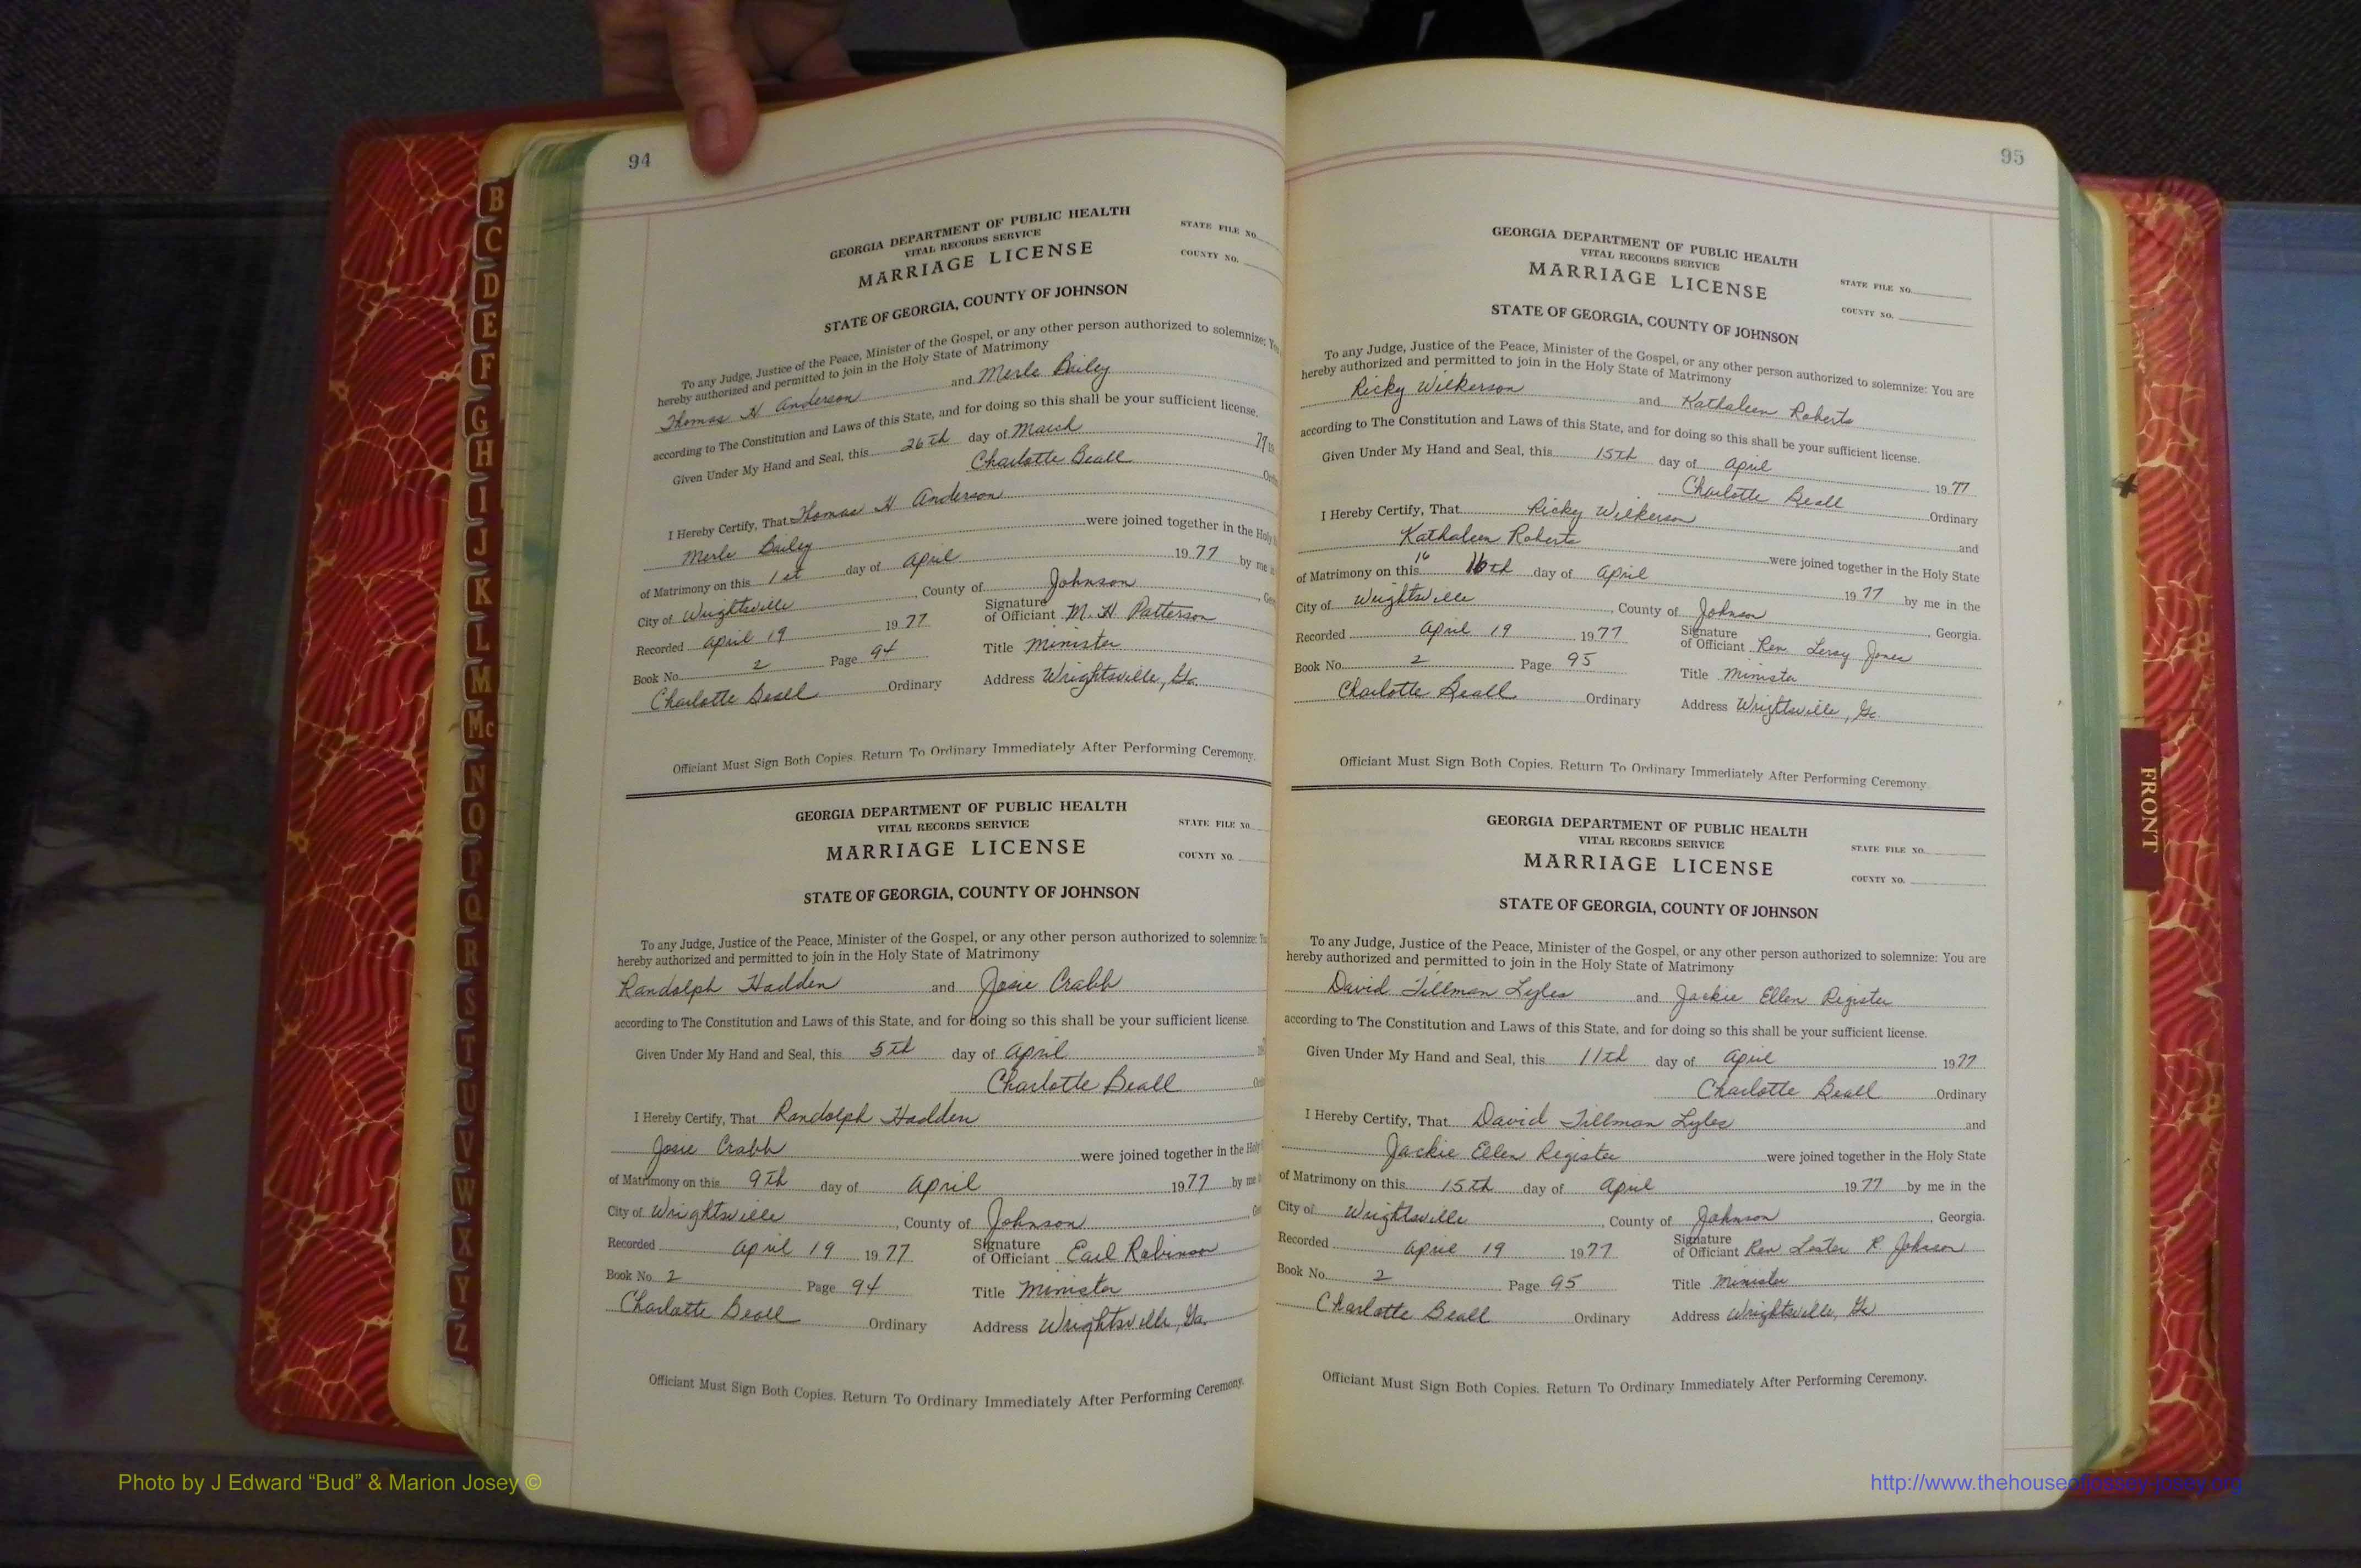 94
GEORGIA DEPARTMENT OF PUBLIC HEALTH
VITAL RECORDS SERVICE
MARRIAGE LICENSE
STATE FILE NO.
COUNTY NO.
STATE OF GEORGIA, COUNTY OF JOHNSON
To any Judge, Justice of the Peace, Minister of the Gospel, or any other person authorized to solemnize: You
hereby authorized and permitted to join in the Holy State of Matrimony
Thomas H Anderson and Merle Bailey
according to The Constitution and Laws of this State, and for doing so this shall be your sufficient license.
Given Under My Hand and Seal, this 26th day of March
Charlotte Beall
I Hereby Certify, That Thomas H Anderson
Merle Bailey were joined together in the Holy
of Matrimony on this 1st day of April 1977 by me
City of Wrightsville, County of Johnson
Recorded April 19 1977 Signature of Officiant M. H. Patterson
Book No. 2 Page 94 Title Minister
Charlotte Beall Ordinary Address Wrightsville, Ga.
Officiant Must Sign Both Copies. Return To Ordinary Immediately After Performing Ceremony.
GEORGIA DEPARTMENT OF PUBLIC HEALTH
VITAL RECORDS SERVICE
MARRIAGE LICENSE
STATE FILE NO.
COUNTY NO.
STATE OF GEORGIA, COUNTY OF JOHNSON
To any Judge, Justice of the Peace, Minister of the Gospel, or any other person authorized to solemnize:
hereby authorized and permitted to join in the Holy State of Matrimony
Randolph Hadden and Josie Crabb
according to The Constitution and Laws of this State, and for doing so this shall be your sufficient license.
Given Under My Hand and Seal, this 5th day of April
Charlotte Beall
I Hereby Certify, That Randolph Hadden
Josie Crabb were joined together in the Holy
of Matrimony on this 9th day of April 1977 by me
City of Wrightsville, County of Johnson
Recorded April 19 1977 Signature of Officiant Earl Robinson
Book No. 2 Page 94 Title Minister
Charlotte Beall Ordinary Address Wrightsville, Ga.
Officiant Must Sign Both Copies. Return To Ordinary Immediately After Performing Ceremony.
95
GEORGIA DEPARTMENT OF PUBLIC HEALTH
VITAL RECORDS SERVICE
MARRIAGE LICENSE
STATE FILE NO.
COUNTY NO.
STATE OF GEORGIA, COUNTY OF JOHNSON
To any Judge, Justice of the Peace, Minister of the Gospel, or any other person authorized to solemnize: You are
hereby authorized and permitted to join in the Holy State of Matrimony
Ricky Wilkerson and Kathaleen Roberts
according to The Constitution and Laws of this State, and for doing so this shall be your sufficient license.
Given Under My Hand and Seal, this 15th day of April 1977
Charlotte Beall Ordinary
I Hereby Certify, That Ricky Wilkerson and
Kathaleen Roberts were joined together in the Holy State
of Matrimony on this 16 16th day of April 1977 by me in the
City of Wrightsville, County of Johnson, Georgia.
Recorded April 19 1977 Signature of Officiant Rev. Leroy Jones
Book No. 2 Page 95 Title Minister
Charlotte Beall Ordinary Address Wrightsville, Ga.
Officiant Must Sign Both Copies. Return To Ordinary Immediately After Performing Ceremony.
GEORGIA DEPARTMENT OF PUBLIC HEALTH
VITAL RECORDS SERVICE
MARRIAGE LICENSE
STATE FILE NO.
COUNTY NO.
STATE OF GEORGIA, COUNTY OF JOHNSON
To any Judge, Justice of the Peace, Minister of the Gospel, or any other person authorized to solemnize: You are
hereby authorized and permitted to join in the Holy State of Matrimony
David Tillman Lyles and Jackie Ellen Register
according to The Constitution and Laws of this State, and for doing so this shall be your sufficient license.
Given Under My Hand and Seal, this 11th day of April 1977
Charlotte Beall Ordinary
I Hereby Certify, That David Tillman Lyles and
Jackie Ellen Register were joined together in the Holy State
of Matrimony on this 15th day of April 1977 by me in the
City of Wrightsville, County of Johnson, Georgia.
Recorded April 19 1977 Signature of Officiant Rev. Lester R Johnson
Book No. 2 Page 95 Title Minister
Charlotte Beall Ordinary Address Wrightsville, Ga
Officiant Must Sign Both Copies. Return To Ordinary Immediately After Performing Ceremony.
B
C
D
E
F
G
H
I
J
K
L
M
Mc
N
O
P
Q
R
S
T
U
V
W
X
Y
Z
FRONT
Photo by J Edward “Bud” & Marion Josey ©
http://www.thehouseofjossey-josey.org